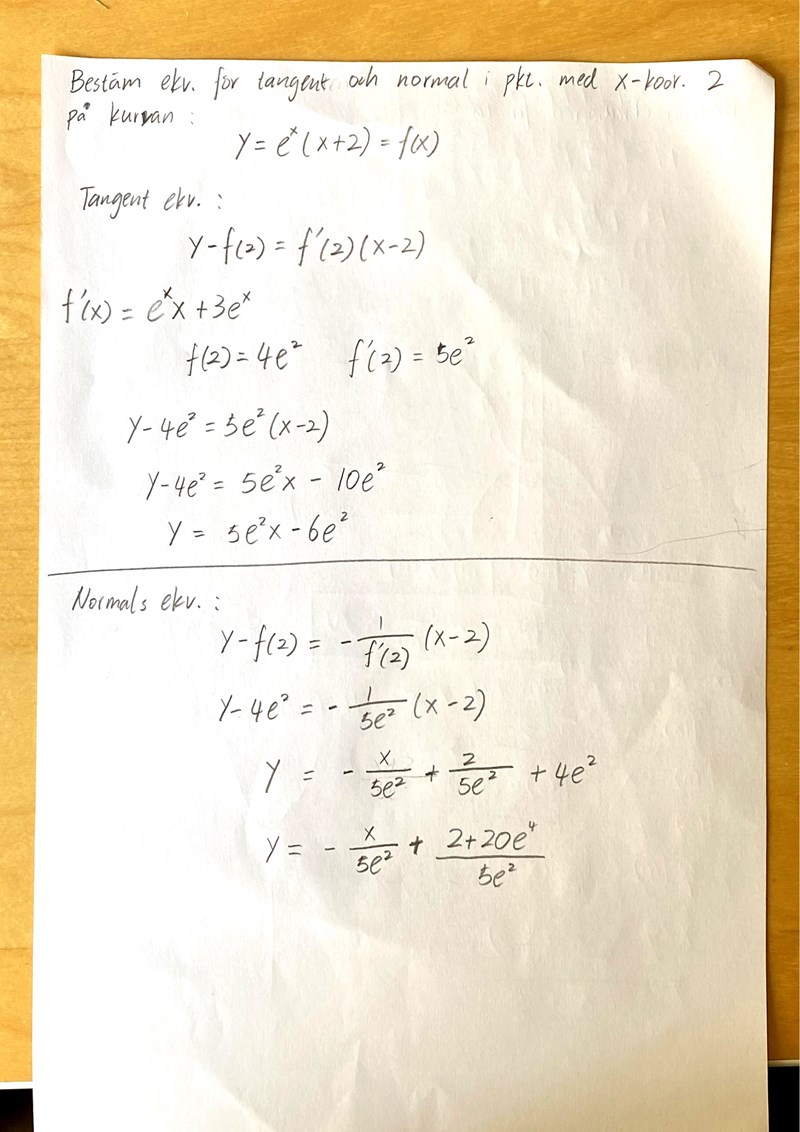 Bestäm ekv. för tangent och normal i pkt. med x-koor. 2
på kurvan :
y = eˣ(x+2) = f(x)
Tangent ekv. :
y - f(2) = f'(2)(x-2)
f'(x) = eˣx + 3eˣ
f(2) = 4e² f'(2) = 5e²
y - 4e² = 5e²(x-2)
y - 4e² = 5e²x - 10e²
y = 5e²x - 6e²
Normals ekv. :
y - f(2) = - 1/f'(2) (x-2)
y - 4e² = - 1/5e² (x-2)
y = - x/5e² + 2/5e² + 4e²
y = - x/5e² + (2+20e⁴)/5e²